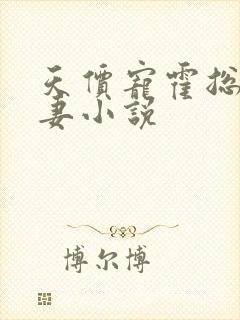 天價寵霍總
妻小說
博尔博